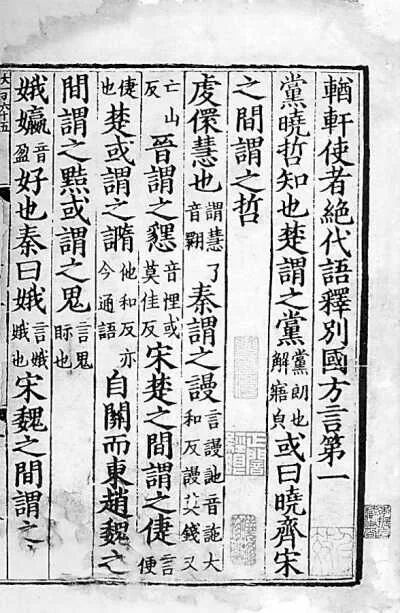 輶軒使者絕代語釋別國方言第一
黨曉哲知也楚謂之黨黨朗也解寤皃或曰曉齊宋
之間謂之哲
虔儇慧也謂慧了音翾秦謂之謾言謾訑音訑大和反謾莫錢又
亡山反晉謂之㦟音悝或莫佳反宋楚之間謂之倢言便
倢也楚或謂之䜏他和反亦今通語自關而東趙魏之
間謂之黠或謂之鬼言鬼眎也
娥㜲音盈好也秦曰娥言娥娥也宋魏之間謂之
大一百六十五